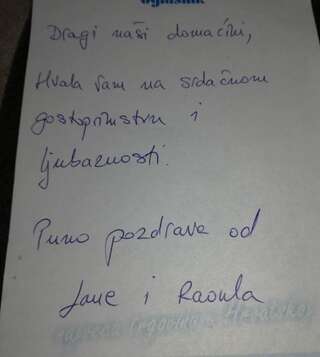 Dragi naši domaćini,
Hvala vam na srdačnom
gostoprimstvu i
ljubaznosti.
Puno pozdrava od
Jane i Raoula